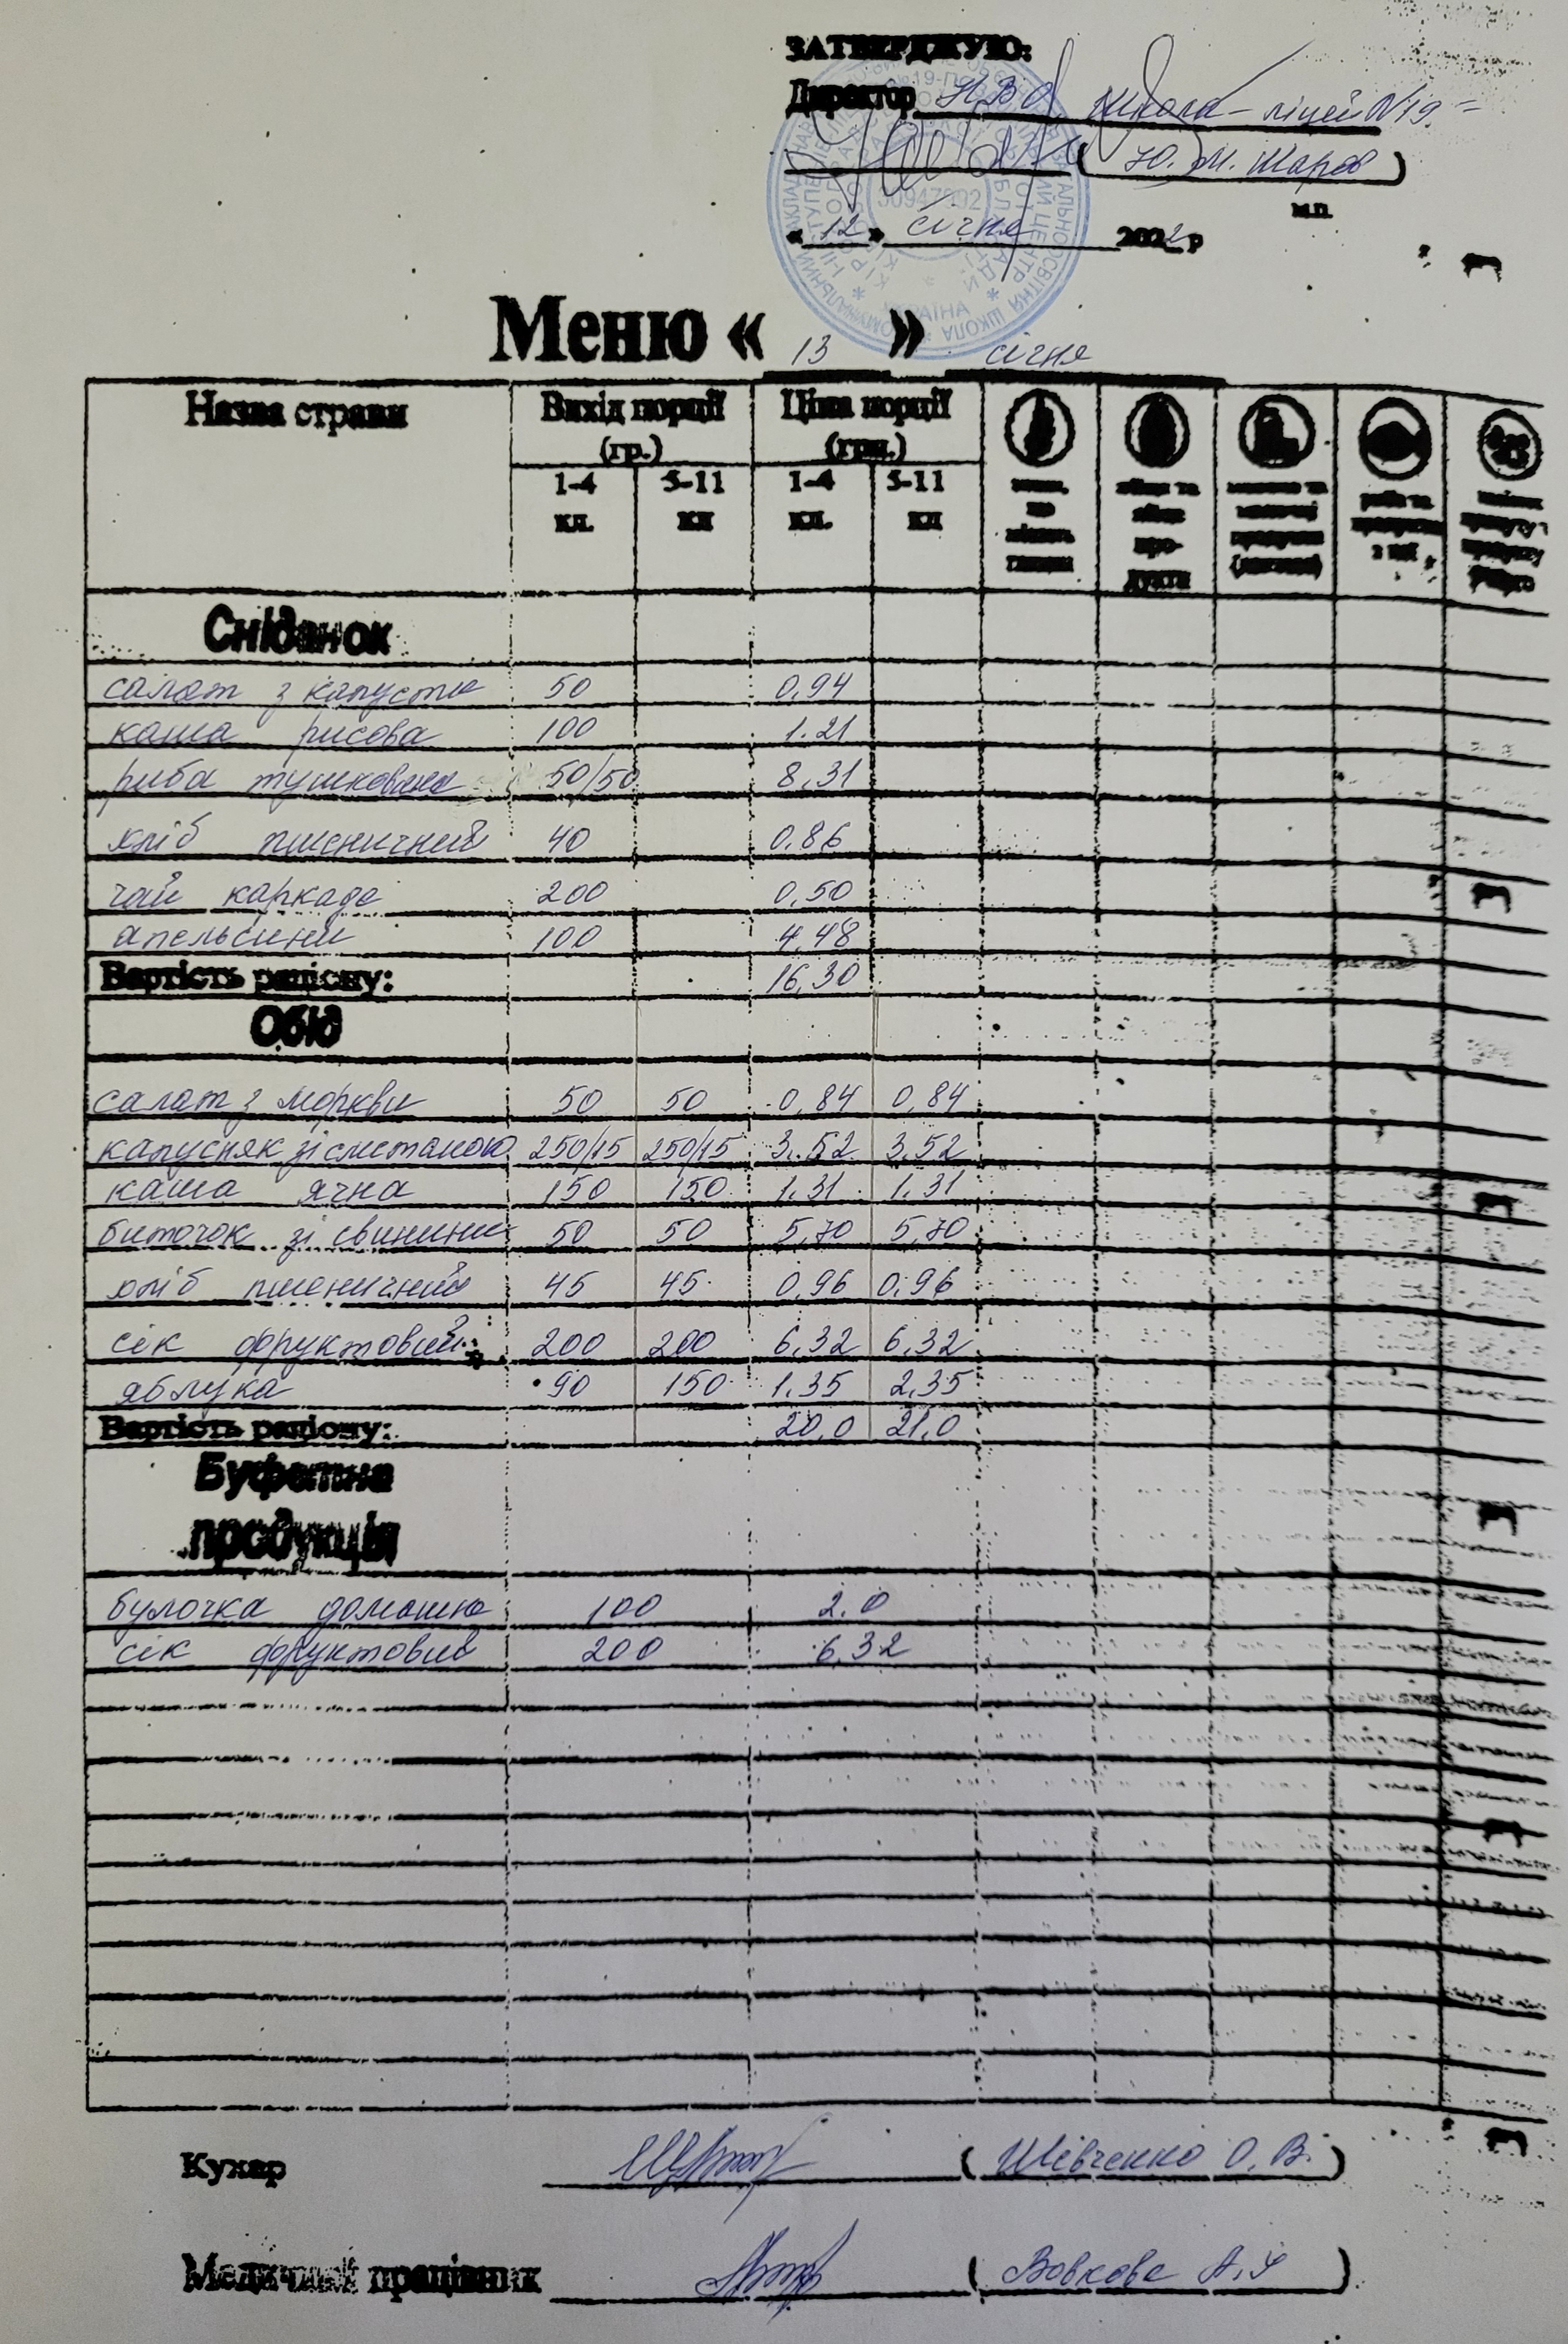 ЗАТВЕРДЖУЮ:
Директор НВО школа-ліцей N19
( Ю. М. Жаров )
м.п.
« 12 » січня 2022 р
30947992
УКРАЇНА
Меню « 13 » січня
Назва страви Вихід порції (гр.) Ціна порції (грн.)
1-4 кл. 5-11 кл 1-4 кл. 5-11 кл
яйця та яйце про- дукти
риба та продукти з неї
Сніданок
салат з капусти 50 0,94
каша рисова 100 1.21
риба тушкована 50/50 8,31
хліб пшеничний 40 0,86
чай каркаде 200 0,50
апельсини 100 4,48
Вартість раціону: 16,30
Обід
салат з моркви 50 50 0,84 0,84
капусняк зі сметаною 250/15 250/15 3.52 3,52
каша ячна 150 150 1.31 1.31
биточок зі свинини 50 50 5,70 5,70
хліб пшеничний 45 45 0,96 0,96
сік фруктовий 200 200 6,32 6,32
яблука 90 150 1,35 2,35
Вартість раціону: 20,0 21,0
Буфетна
продукція
булочка домашня 100 2.0
сік фруктовий 200 6,32
Кухар ( Шевченко О. В. )
Медичний працівник ( Вовкова А. )